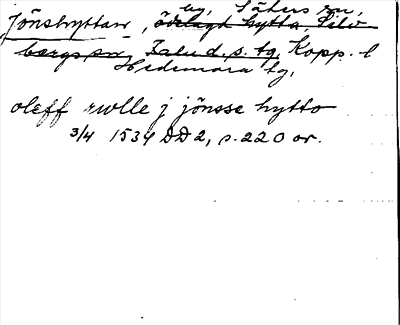 by, Säters sn,
Jönshyttan, ödelagd hytta, Silv
bergs sn, Falu d. s. tg, Kopp. l
Hedemora tg,
oleff rwlle j jönsse hytto
3/4 1534 DD2, s. 220 or.